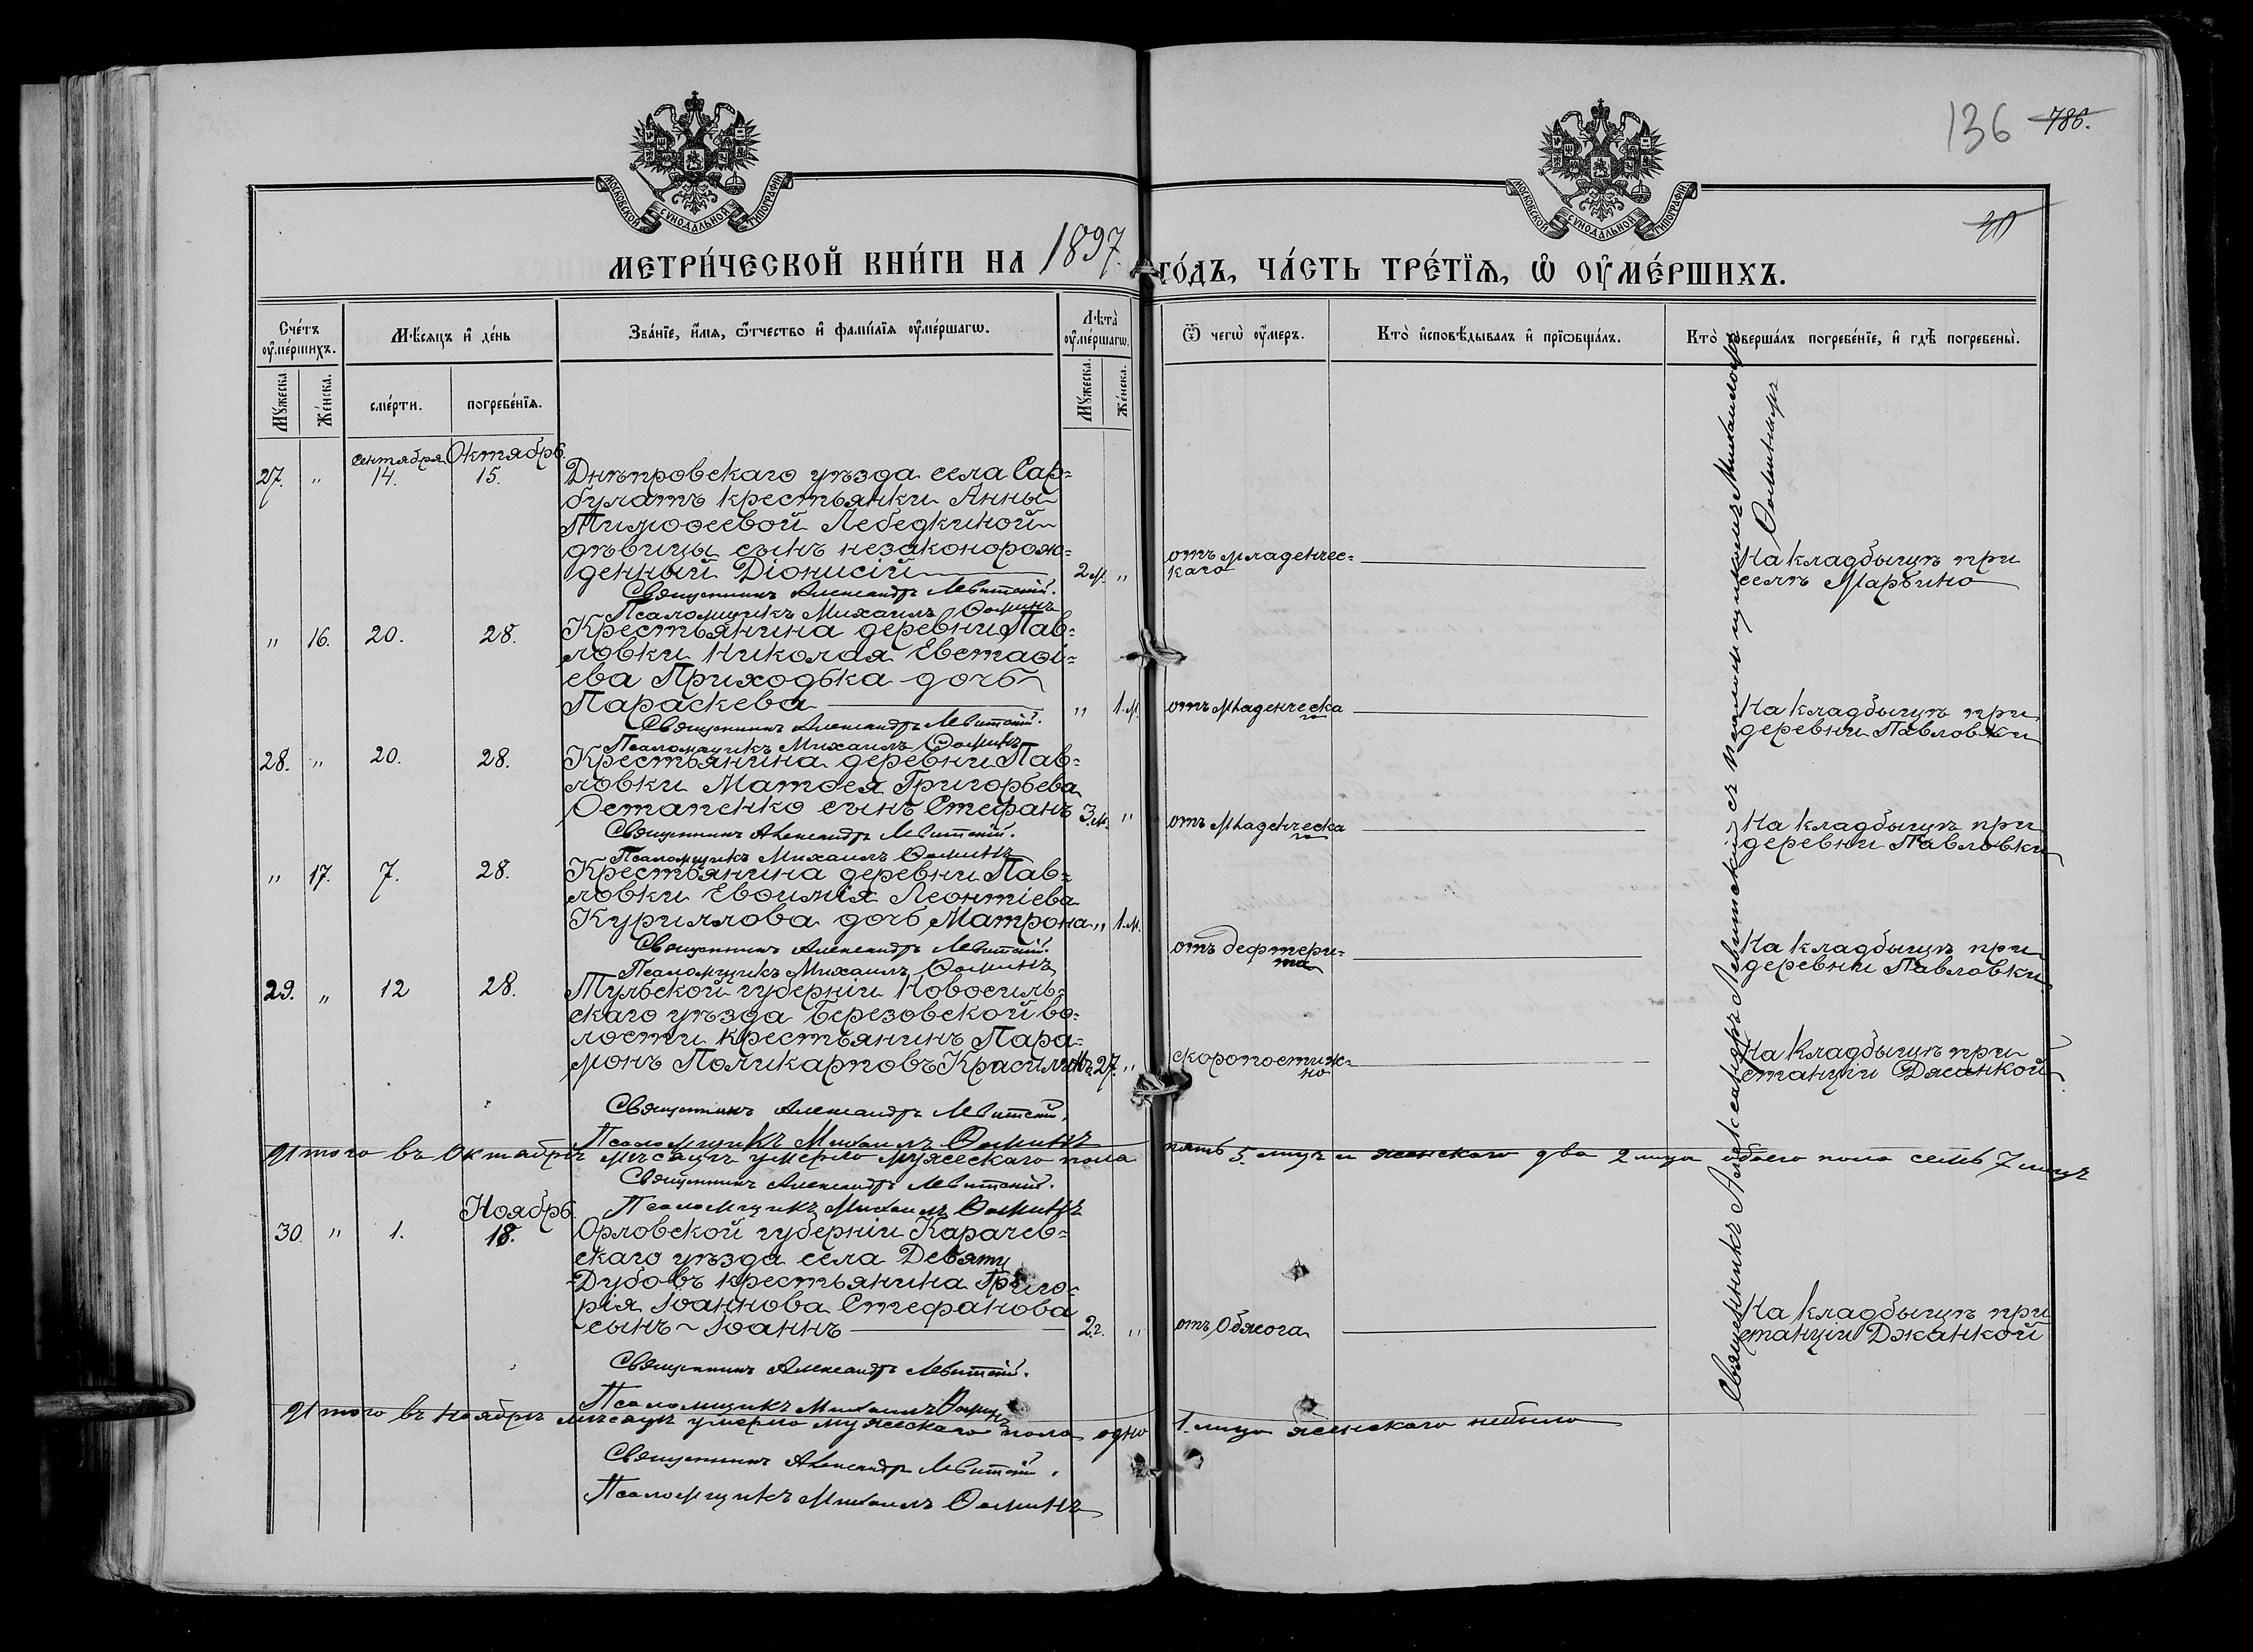 136 786.
МОСКОВСКОЙ СѴНОДАЛЬНОЙ ТИПОГРАФІИ
МОСКОВСКОЙ СѴНОДАЛЬНОЙ ТИПОГРАФІИ
МЕТРИ́ЧЕСКОЙ КНИ́ГИ НА 1897. ГО́ДЪ, ЧА́СТЬ ТРЕ́ТЇѦ, Ѡ҆ ОУ҆МЕ́РШИХЪ.
Сче́тъ оу҆ме́ршихъ.
Мꙋ́жеска
Же́нска.
Мѣ́сяцъ и҆ де́нь
сме́рти.
погребе́нїѧ.
Зва́нїе, и҆́мѧ, ѻ҆́тчество и҆ фами́лїѧ оу҆ме́ршагѡ.
Лѣ́та оу҆ме́ршагѡ.
Мꙋ́жеска.
Же́нска.
Ѿ чегѡ̀ оу҆́меръ.
Кто̀ и҆сповѣ́дывалъ и҆ прїѡбща́лъ.
Кто̀ соверша́лъ погребе́нїе, и҆ гдѣ̀ погребены̀.
Сентября Октябрь.
27. " 14. 15. Днѣпровскаго уѣзда села Сар-
булатъ крестьянки Анны
Тимоѳеевой Лебедкиной
дѣвицы сынъ незаконорож-
денный Діонисій 2 м. " отъ младенчес-
каго
На кладбищѣ при
селѣ Марьино
Священникъ Александръ Левитскій.
Псаломщикъ Михаилъ Ѳоминъ
" 16. 20. 28. Крестьянина деревни Пав-
ловки Николая Евстаѳі-
ева Приходька дочь
Параскева " 1.м. отъ младенческа
го
На кладбищѣ при
деревни Павловки
Священникъ Александръ Левитскій.
Псаломщикъ Михаилъ Ѳоминъ
28. " 20. 28. Крестьянина деревни Пав-
ловки Матѳея Григорьева
Остапенко сынъ Стефанъ 3.м. " отъ младенческа
го
На кладбищѣ при
деревни Павловки
Священникъ Александръ Левитскій.
Псаломщикъ Михаилъ Ѳоминъ
" 17. 7. 28. Крестьянина деревни Пав-
ловки Евѳимія Леонтіева
Курилова дочь Матрона " 1.м.
отъ дефтери-
та
На кладбищѣ при
деревни Павловки
Священникъ Александръ Левитскій.
Псаломщикъ Михаилъ Ѳоминъ
29. " 12 28. Тульской губерніи Новосиль-
скаго уѣзда Березовской во-
лости крестьянинъ Пара-
монъ Поликарповъ 27. " скоропостиж-
но
На Кладбищѣ при
станціи Джанкой
Священникъ Александръ Левитскій.
Псаломщикъ Михаилъ Ѳоминъ
Итого въ Октябрѣ мѣсяцѣ умерло мужескаго пола пять 5. лицъ и женскаго два 2 лица обоего пола семь 7 лицъ
Священникъ Александръ Левитскій.
Псаломщикъ Михаилъ Ѳоминъ
Ноябрь.
30. " 1. 18. Орловской губерніи Карачев-
скаго уѣзда села Девяти
Дубовъ крестьянина Григо-
рія Іоаннова Стефанова
сынъ Іоаннъ 2.г. " отъ Обжога
На кладбищѣ при
станціи Джанкой
Священникъ Александръ Левитскій.
Псаломщикъ Михаилъ Ѳоминъ
Итого въ Ноябрѣ мѣсяцѣ умерло мужескаго пола одно 1. лицо женскаго небыло
Священникъ Александръ Левитскій.
Псаломщикъ Михаилъ Ѳоминъ
Священникъ Александръ Левитскій съ псаломщикомъ Михаиломъ
Ѳоминымъ